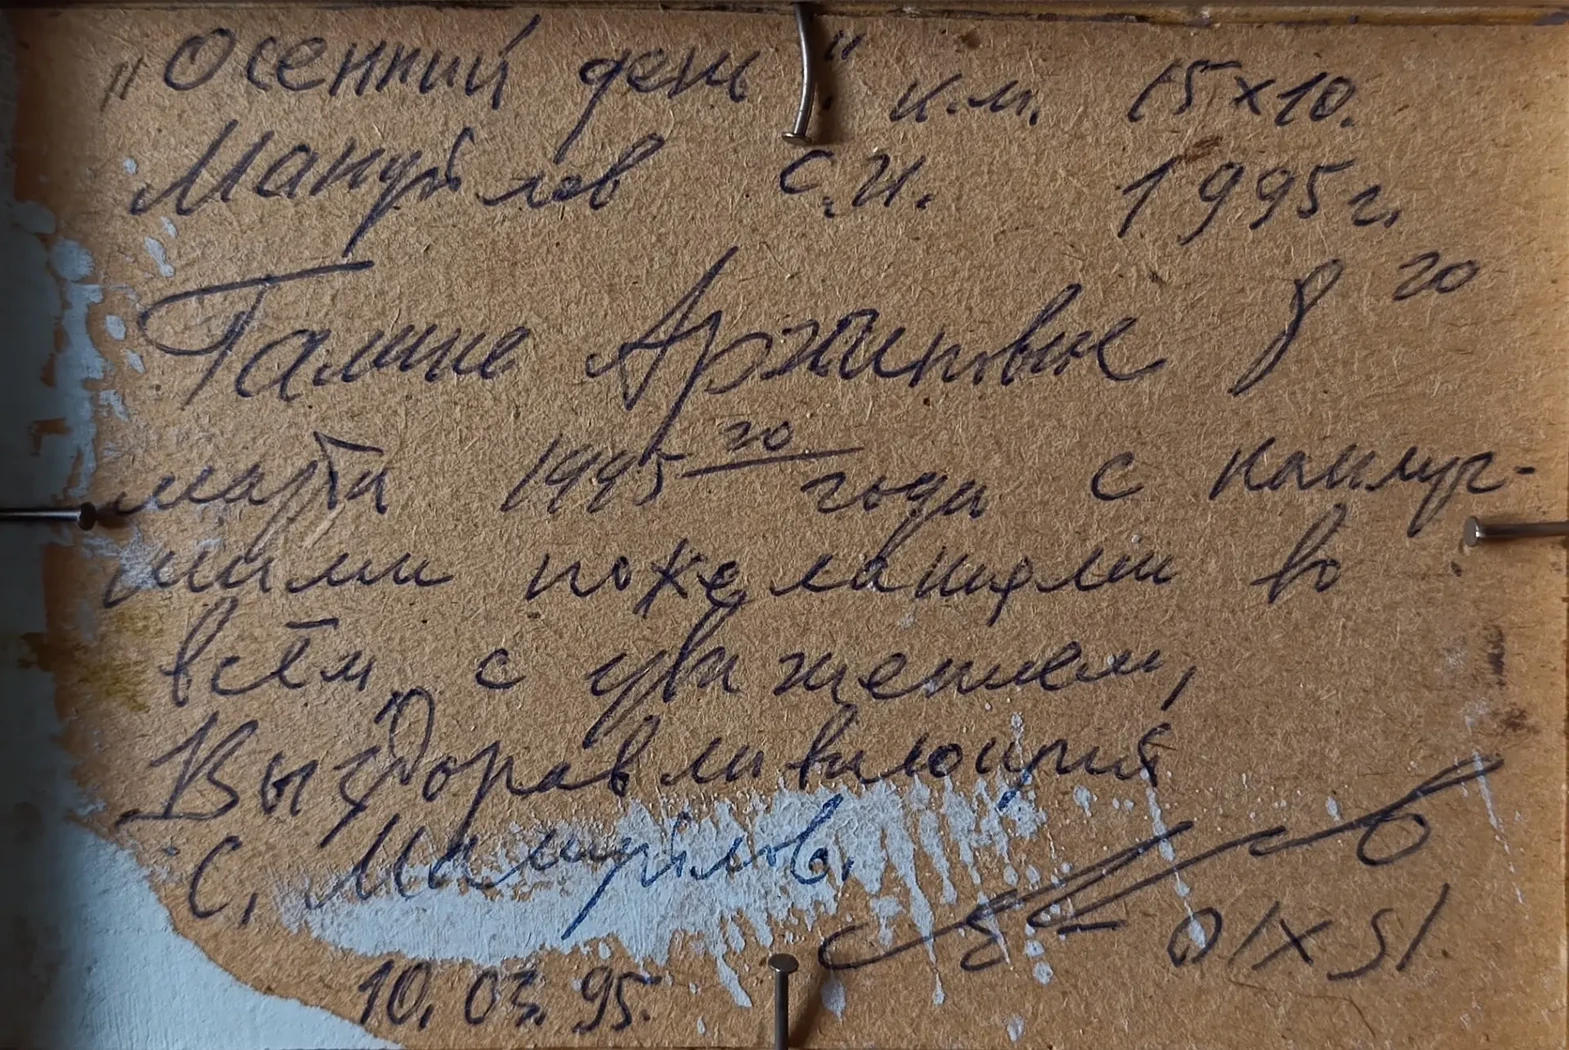 „Осенний день" к.м. 15х10.
Мануйлов С.И. 1995г.
Галине Архиповне 8 го
марта 1995 го года с наилуч-
шими пожеланиями во
всём, с уважением,
Выздоравливающий
С. Мануйлов.
10.03.95.
15х10